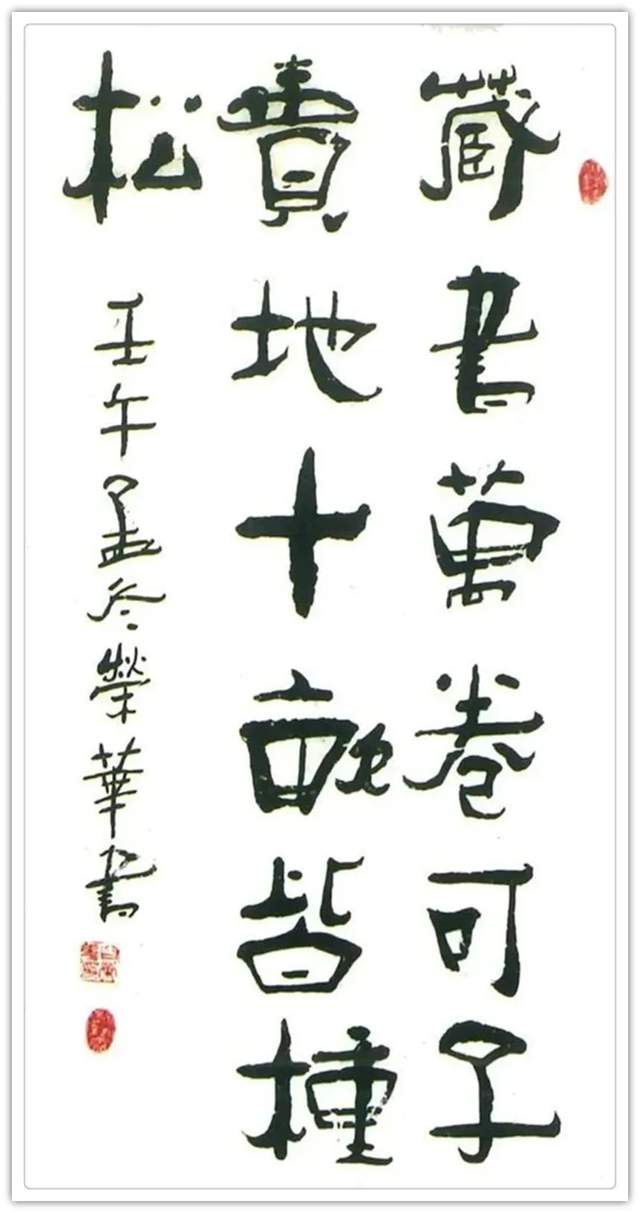 藏書萬卷可子
貴地十畝皆種
松
壬午孟冬榮華書